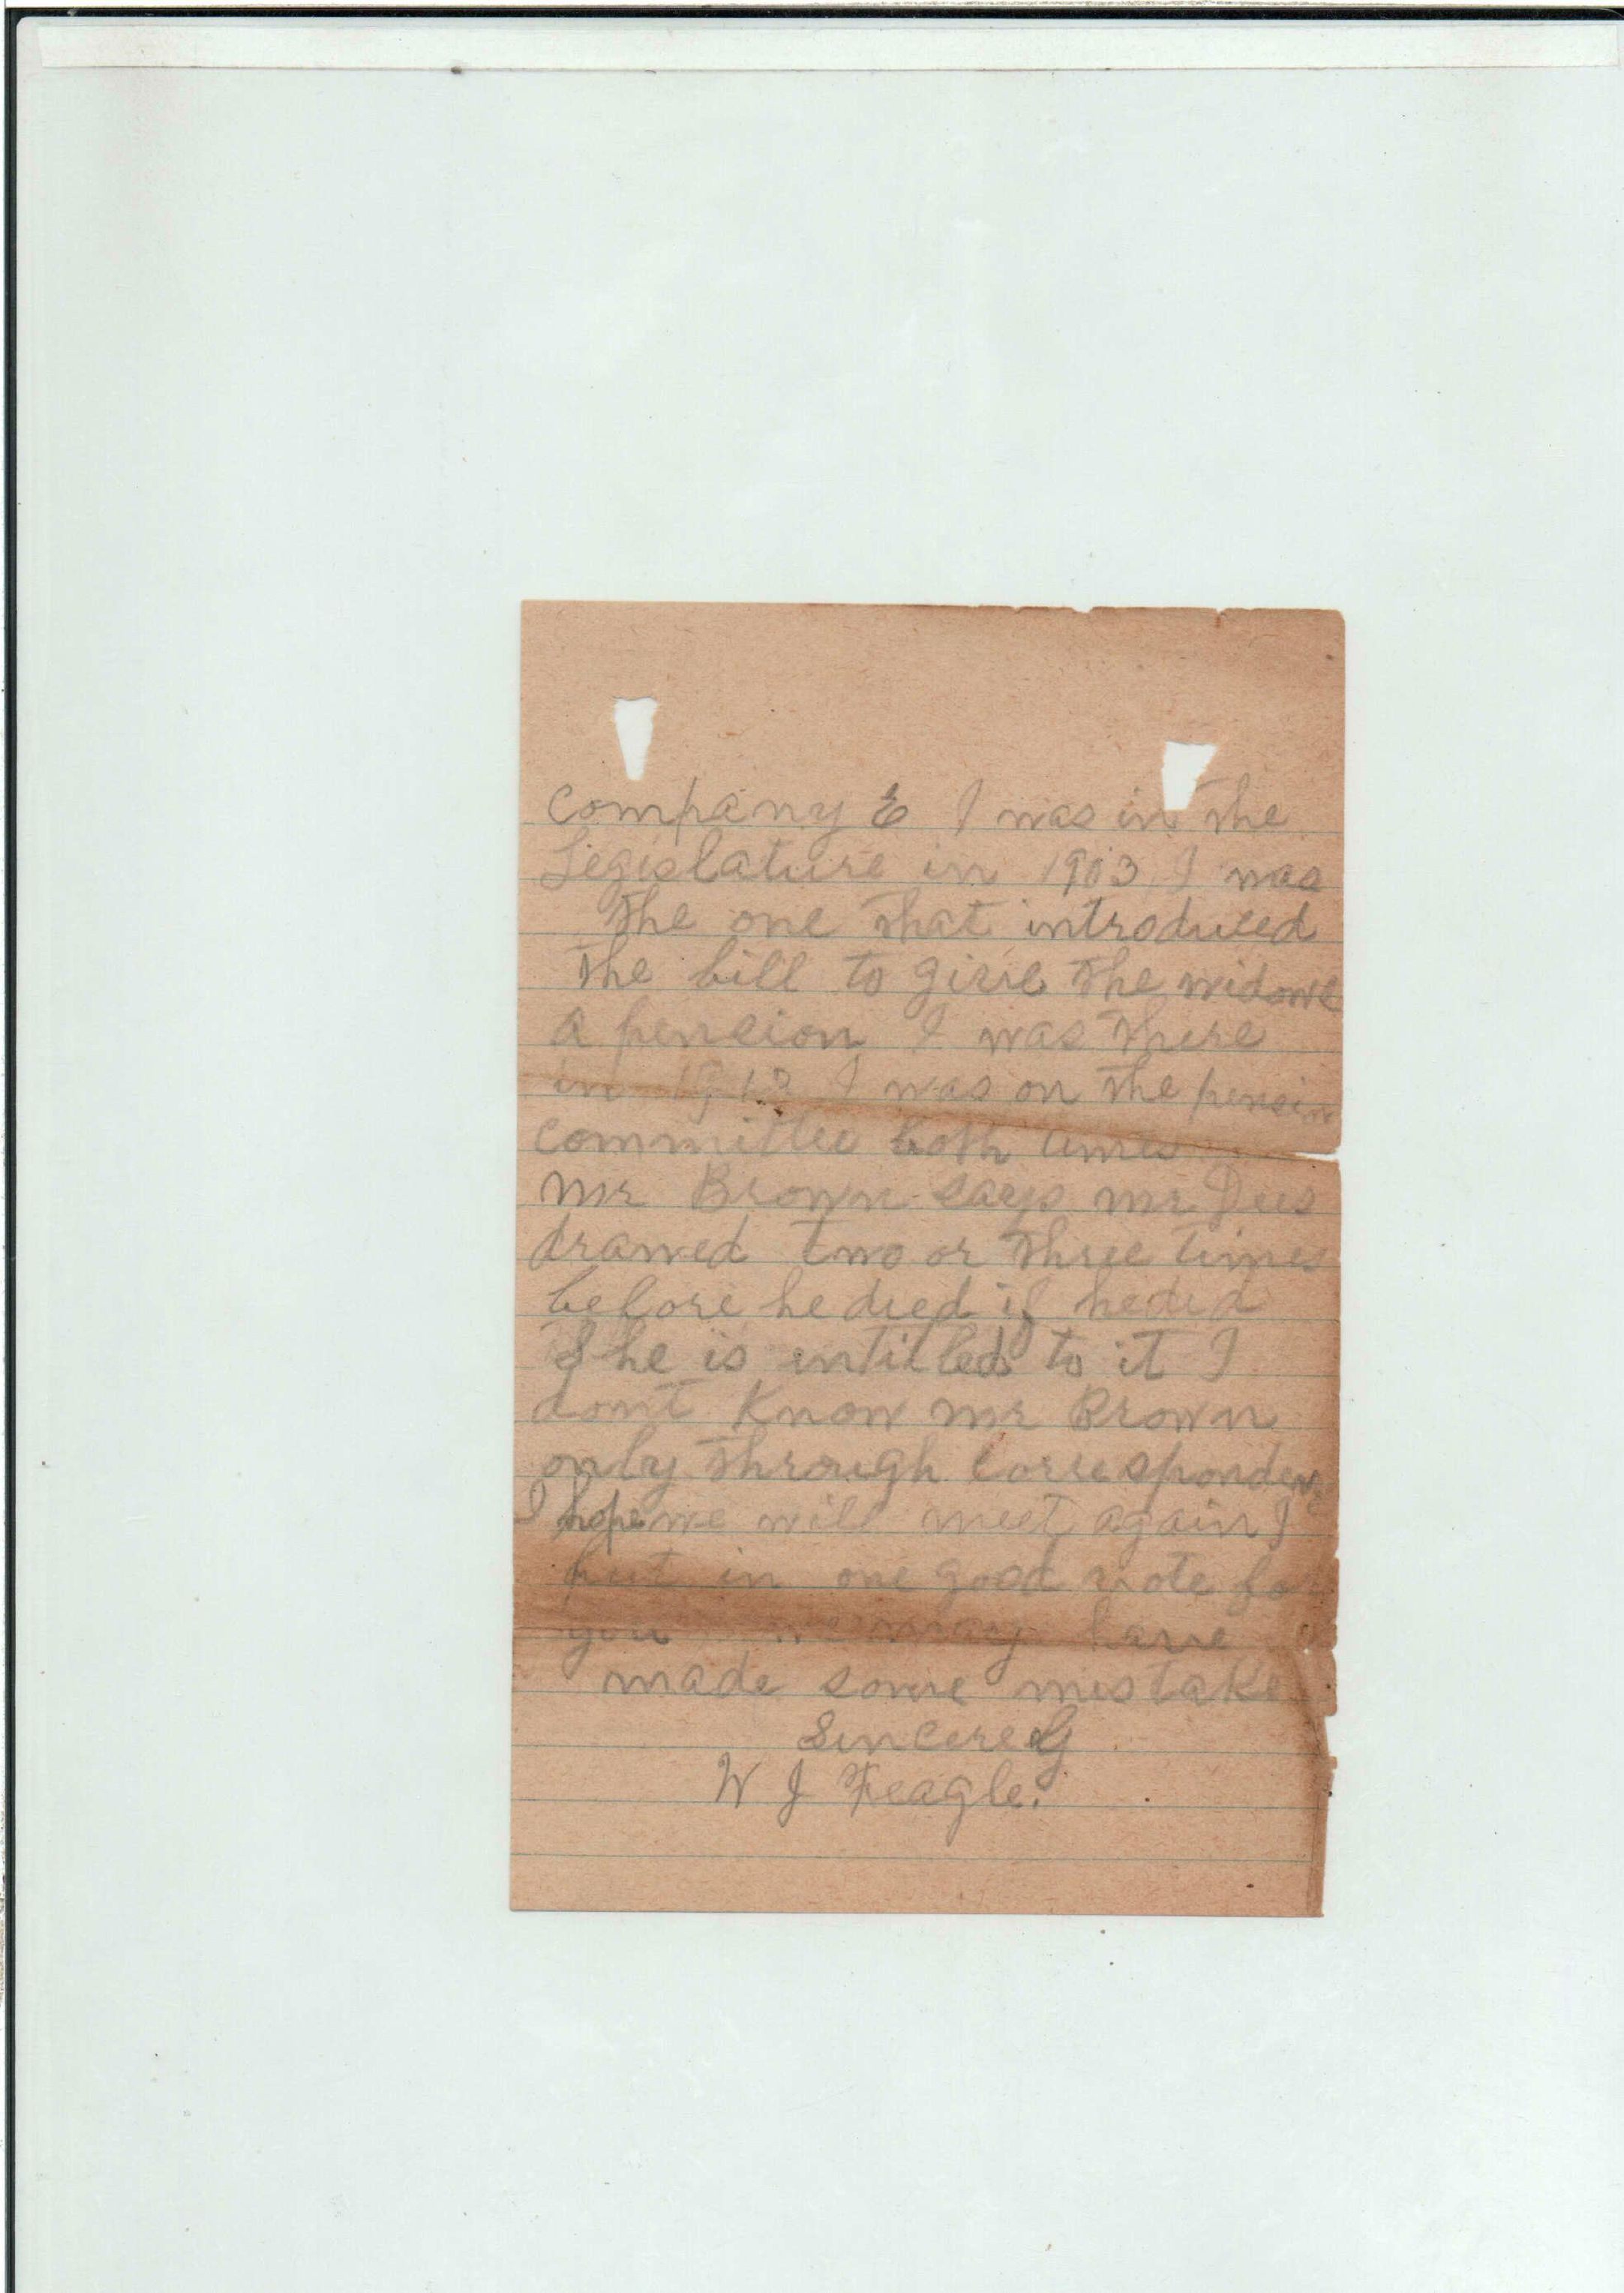 company E I was in the
Legislature in 1903 I was
the one that introduced
the bill to give the widows
a pension I was there
in 1913 I was on the pension
committee both times
Mr Brown says Mr Dees
drawed two or three times
before he died if he did
She is intitled to it I
dont Know Mr Brown
only through Correspondence
I hope we will meet again I
put in one good vote fo
you we may have
made some mistake
Sincerely
W J Feagle.